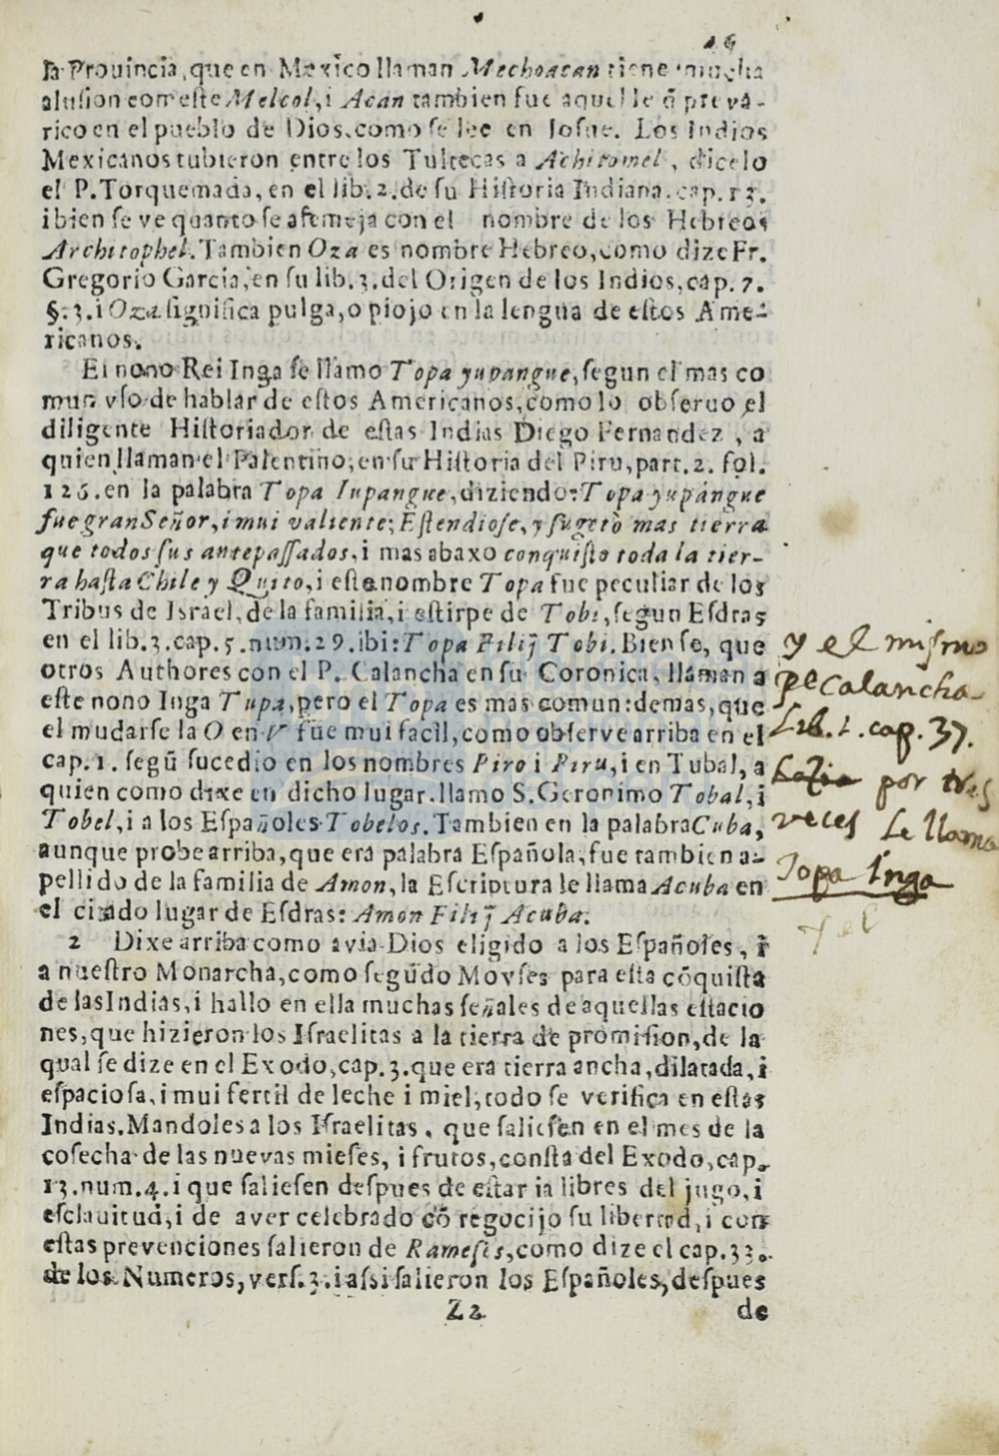 46
la Prouincia, que en Mexico llaman Mechoacan tiene mucha
alusion con este Melcol, i Acan tambien fue aquel le q̃ preva-
rico en el pueblo de Dios, como se lee en Josue. Los Indios
Mexicanos tubieron entre los Tultecas a Achitomel, dicelo
el P. Torquemada, en el lib. 2. de su Historia Indiana. cap. 13.
i bien se ve quanto se asemeja con el nombre de los Hebreos
Architophel. Tambien Oza es nombre Hebreo, como dize Fr.
Gregorio Garcia, en su lib. 3. del Origen de los Indios, cap. 7.
§. 3. i Oza significa pulga, o piojo en la lengua de estos Ame-
ricanos.
El nono Rei Inga se llamo Topa yupangue, segun el mas co
mun vso de hablar de estos Americanos, como lo obseruo el
diligente Historiador de estas Indias Diego Fernandez, a
quien llaman el Palentino, en su Historia del Piru, part. 2. fol.
126. en la palabra Topa Iupangue, diziendo: Topa yupangue
fue gran Señor, i mui valiente; Estendiose, y sugeto mas tierra
que todos sus antepassados, i mas abaxo conquisto toda la tier-
ra hasta Chile y Quito, i este nombre Topa fue peculiar de los
Tribus de Israel, de la familia, i estirpe de Tobi, segun Esdras
en el lib. 3. cap. 5. num. 29. ibi: Topa Filij Tobi. Bien se, que
otros Authores con el P. Calancha en su Coronica, llaman a
este nono Inga Tupa, pero el Topa es mas comun: demas, que
el mudarse la O en V fue mui facil, como observe arriba en el
cap. 1. segũ sucedio en los nombres Piro i Piru, i en Tubal, a
quien como dixe en dicho lugar. llamo S. Geronimo Tobal, i
Tobel, i a los Españoles Tobelos. Tambien en la palabra Cuba,
aunque probe arriba, que era palabra Española, fue tambien a-
pellido de la familia de Amon, la Escriptura le llama Acuba en
el citado lugar de Esdras: Amon Filij Acuba.
2 Dixe arriba como avia Dios eligido a los Españoles, i
a nuestro Monarcha, como segũdo Moyses para esta cõquista
de las Indias, i hallo en ella muchas señales de aquellas estacio
nes, que hizieron los Israelitas a la tierra de promision, de la
qual se dize en el Exodo, cap. 3. que era tierra ancha, dilatada, i
espaciosa, i mui fertil de leche i miel, todo se verifica en estas
Indias. Mandoles a los Israelitas, que saliesen en el mes de la
cosecha de las nuevas mieses, i frutos, consta del Exodo, cap.
13. num. 4. i que saliesen despues de estar ia libres del jugo, i
esclauitud, i de aver celebrado cõ regocijo su libertad, i con
estas prevenciones salieron de Rameses, como dize el cap. 33.
de los Numeros, vers. 3. i assi salieron los Españoles, despues
Z2 de
y el mismo
pe Calancha
Lib. 1. cap. 37.
por tres
veces Le llama
Topa Inga
y el